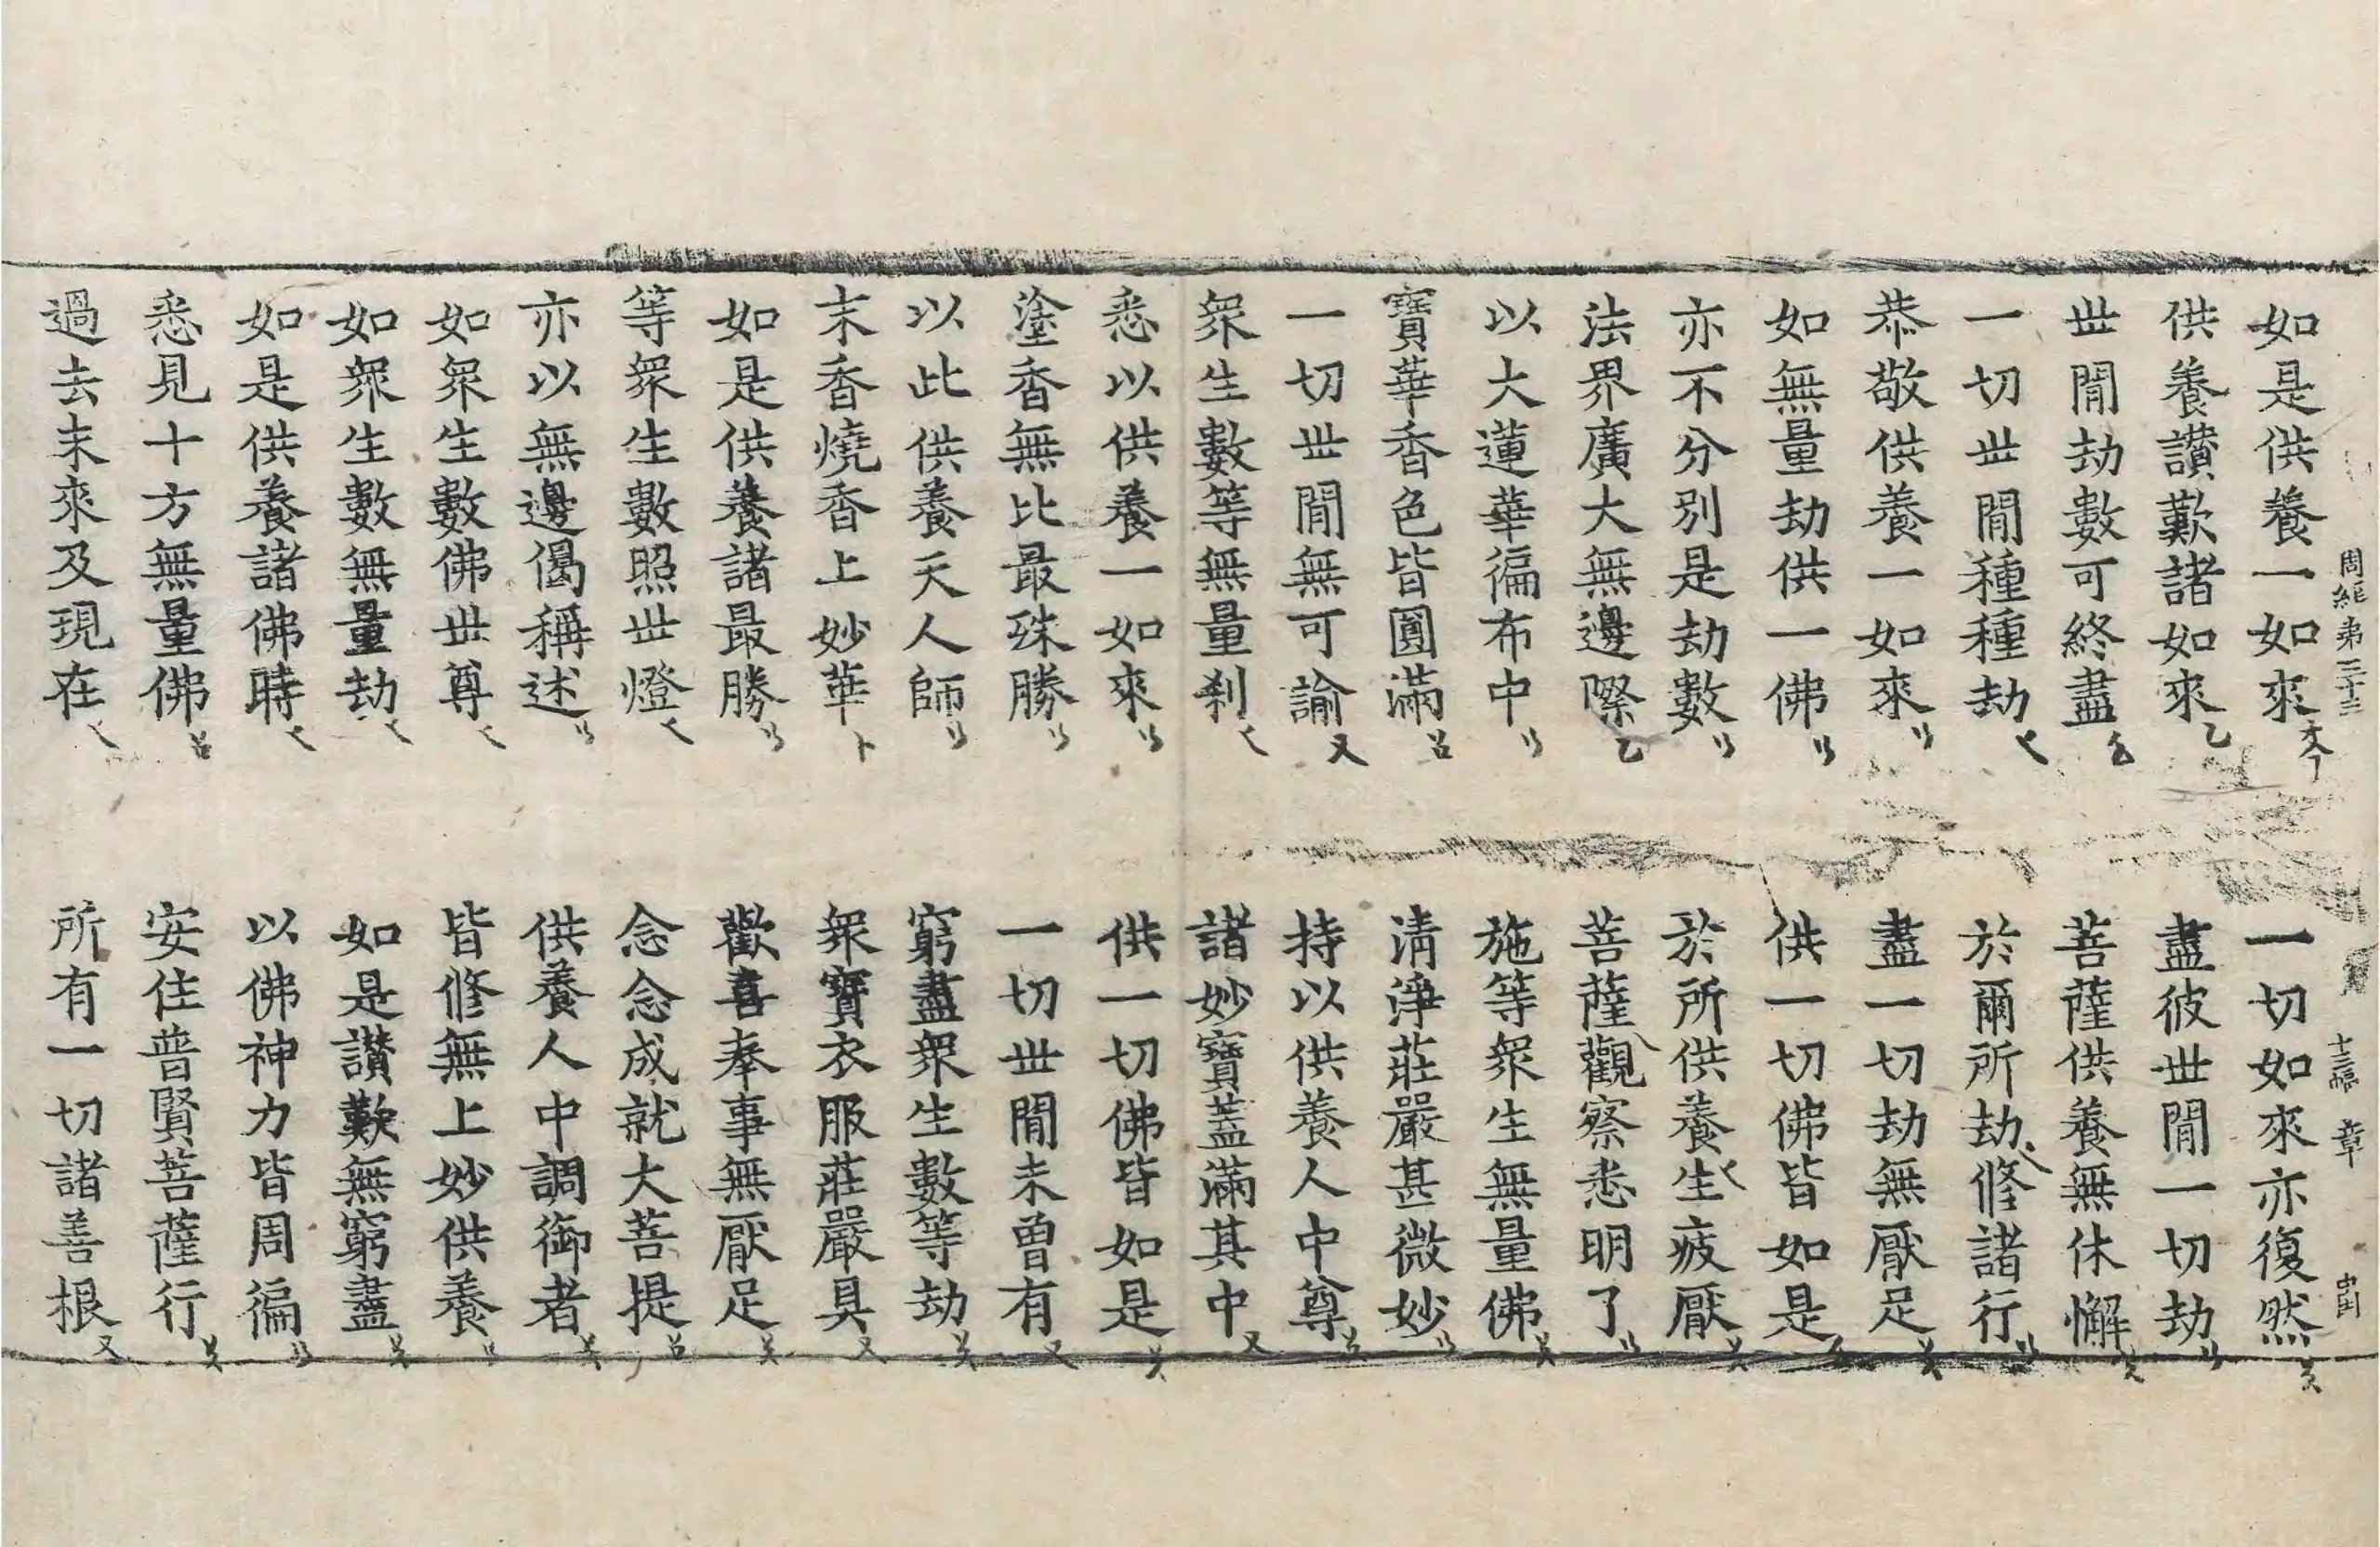 周經第二十三 十三幅 章
如是供養一如來 一切如來亦復然
供養讚歎諸如來 盡彼世閒一切劫
世閒劫數可終盡 菩薩供養無休懈
一切世閒種種劫 於爾所劫修諸行
恭敬供養一如來 盡一切劫無厭足
如無量劫供一佛 供一切佛皆如是
亦不分別是劫數 於所供養生疲厭
法界廣大無邊際 菩薩觀察悉明了
以大蓮華徧布中 施等衆生無量佛
寶華香色皆圓滿 淸淨莊嚴甚微妙
一切世閒無可諭 持以供養人中尊
衆生數等無量刹 諸妙寶蓋滿其中
悉以供養一如來 供一切佛皆如是
塗香無比最殊勝 一切世閒未曾有
以此供養天人師 窮盡衆生數等劫
末香燒香上妙華 衆寶衣服莊嚴具
如是供養諸最勝 歡喜奉事無厭足
等衆生數照世燈 念念成就大菩提
亦以無邊偈稱述 供養人中調御者
如衆生數佛世尊 皆修無上妙供養
如衆生數無量劫 如是讚歎無窮盡
如是供養諸佛時 以佛神力皆周徧
悉見十方無量佛 安住普賢菩薩行
過去未來及現在 所有一切諸善根